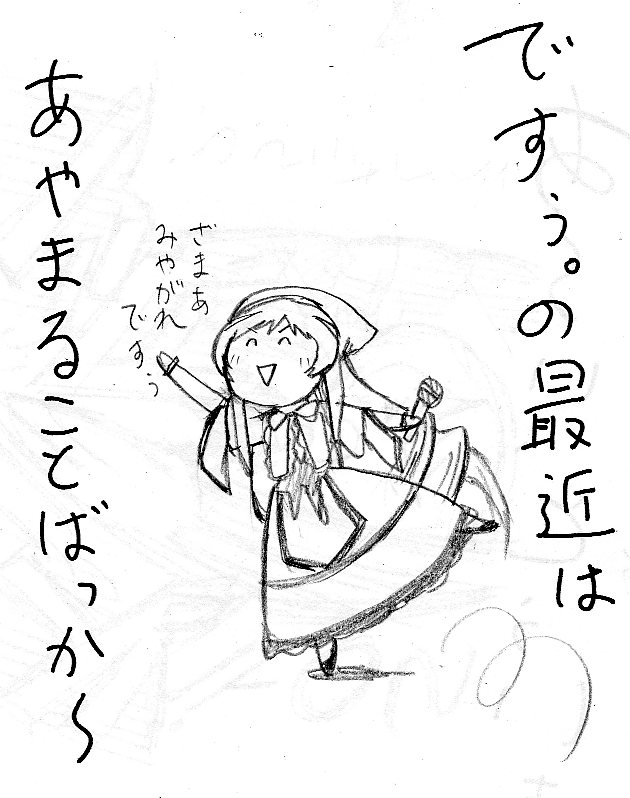 ですぅ。の最近は
ざまあ
みやがれ
ですぅ
あやまることばっか〜